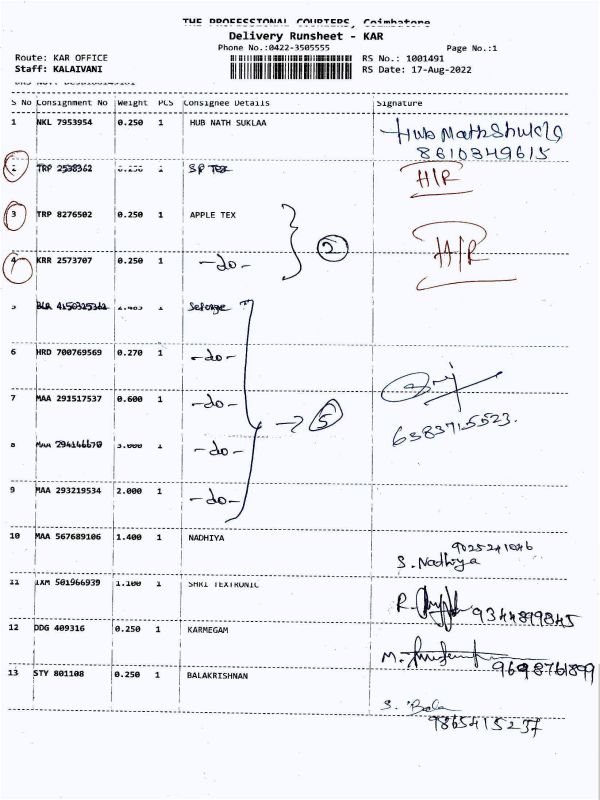 THE PROFESSIONAL COURIERS, Coimbatore
Delivery Runsheet - KAR
Phone No.:0422-3505555 Page No.:1
Route: KAR OFFICE RS No.: 1001491
Staff: KALAIVANI RS Date: 17-Aug-2022
S No Consignment No Weight PCS Consignee Details Signature
1 NKL 7953954 0.250 1 HUB NATH SUKLAA Hub Nath Shukla
8610349615
2 TRP 2538362 0.250 1 SP TEX H/R
3 TRP 8276502 0.250 1 APPLE TEX
2 H/R
4 KRR 2573707 0.250 1 -do-
5 BLR 4150325362 1
6 HRD 700769569 0.270 1 -do-
7 MAA 291517537 0.600 1 -do-
5 6383715523.
8 MAA 294146670 3.000 1 -do-
9 MAA 293219534 2.000 1 -do-
10 MAA 567689106 1.400 1 NADHIYA 9025241046
S. Nadhiya
11 IXM 501966939 1.100 1 SHRI TEXTRONIC R.
9344899845
12 DDG 409316 0.250 1 KARMEGAM M.
9698761899
13 STY 801108 0.250 1 BALAKRISHNAN
S. Bala
9865415237